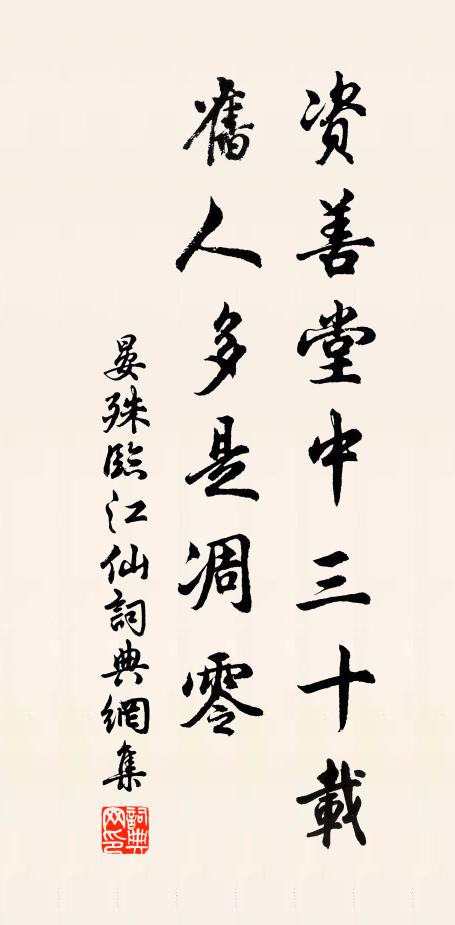 资善堂中三十載
舊人多是凋零
晏殊臨江仙詞典網集
詞典网印